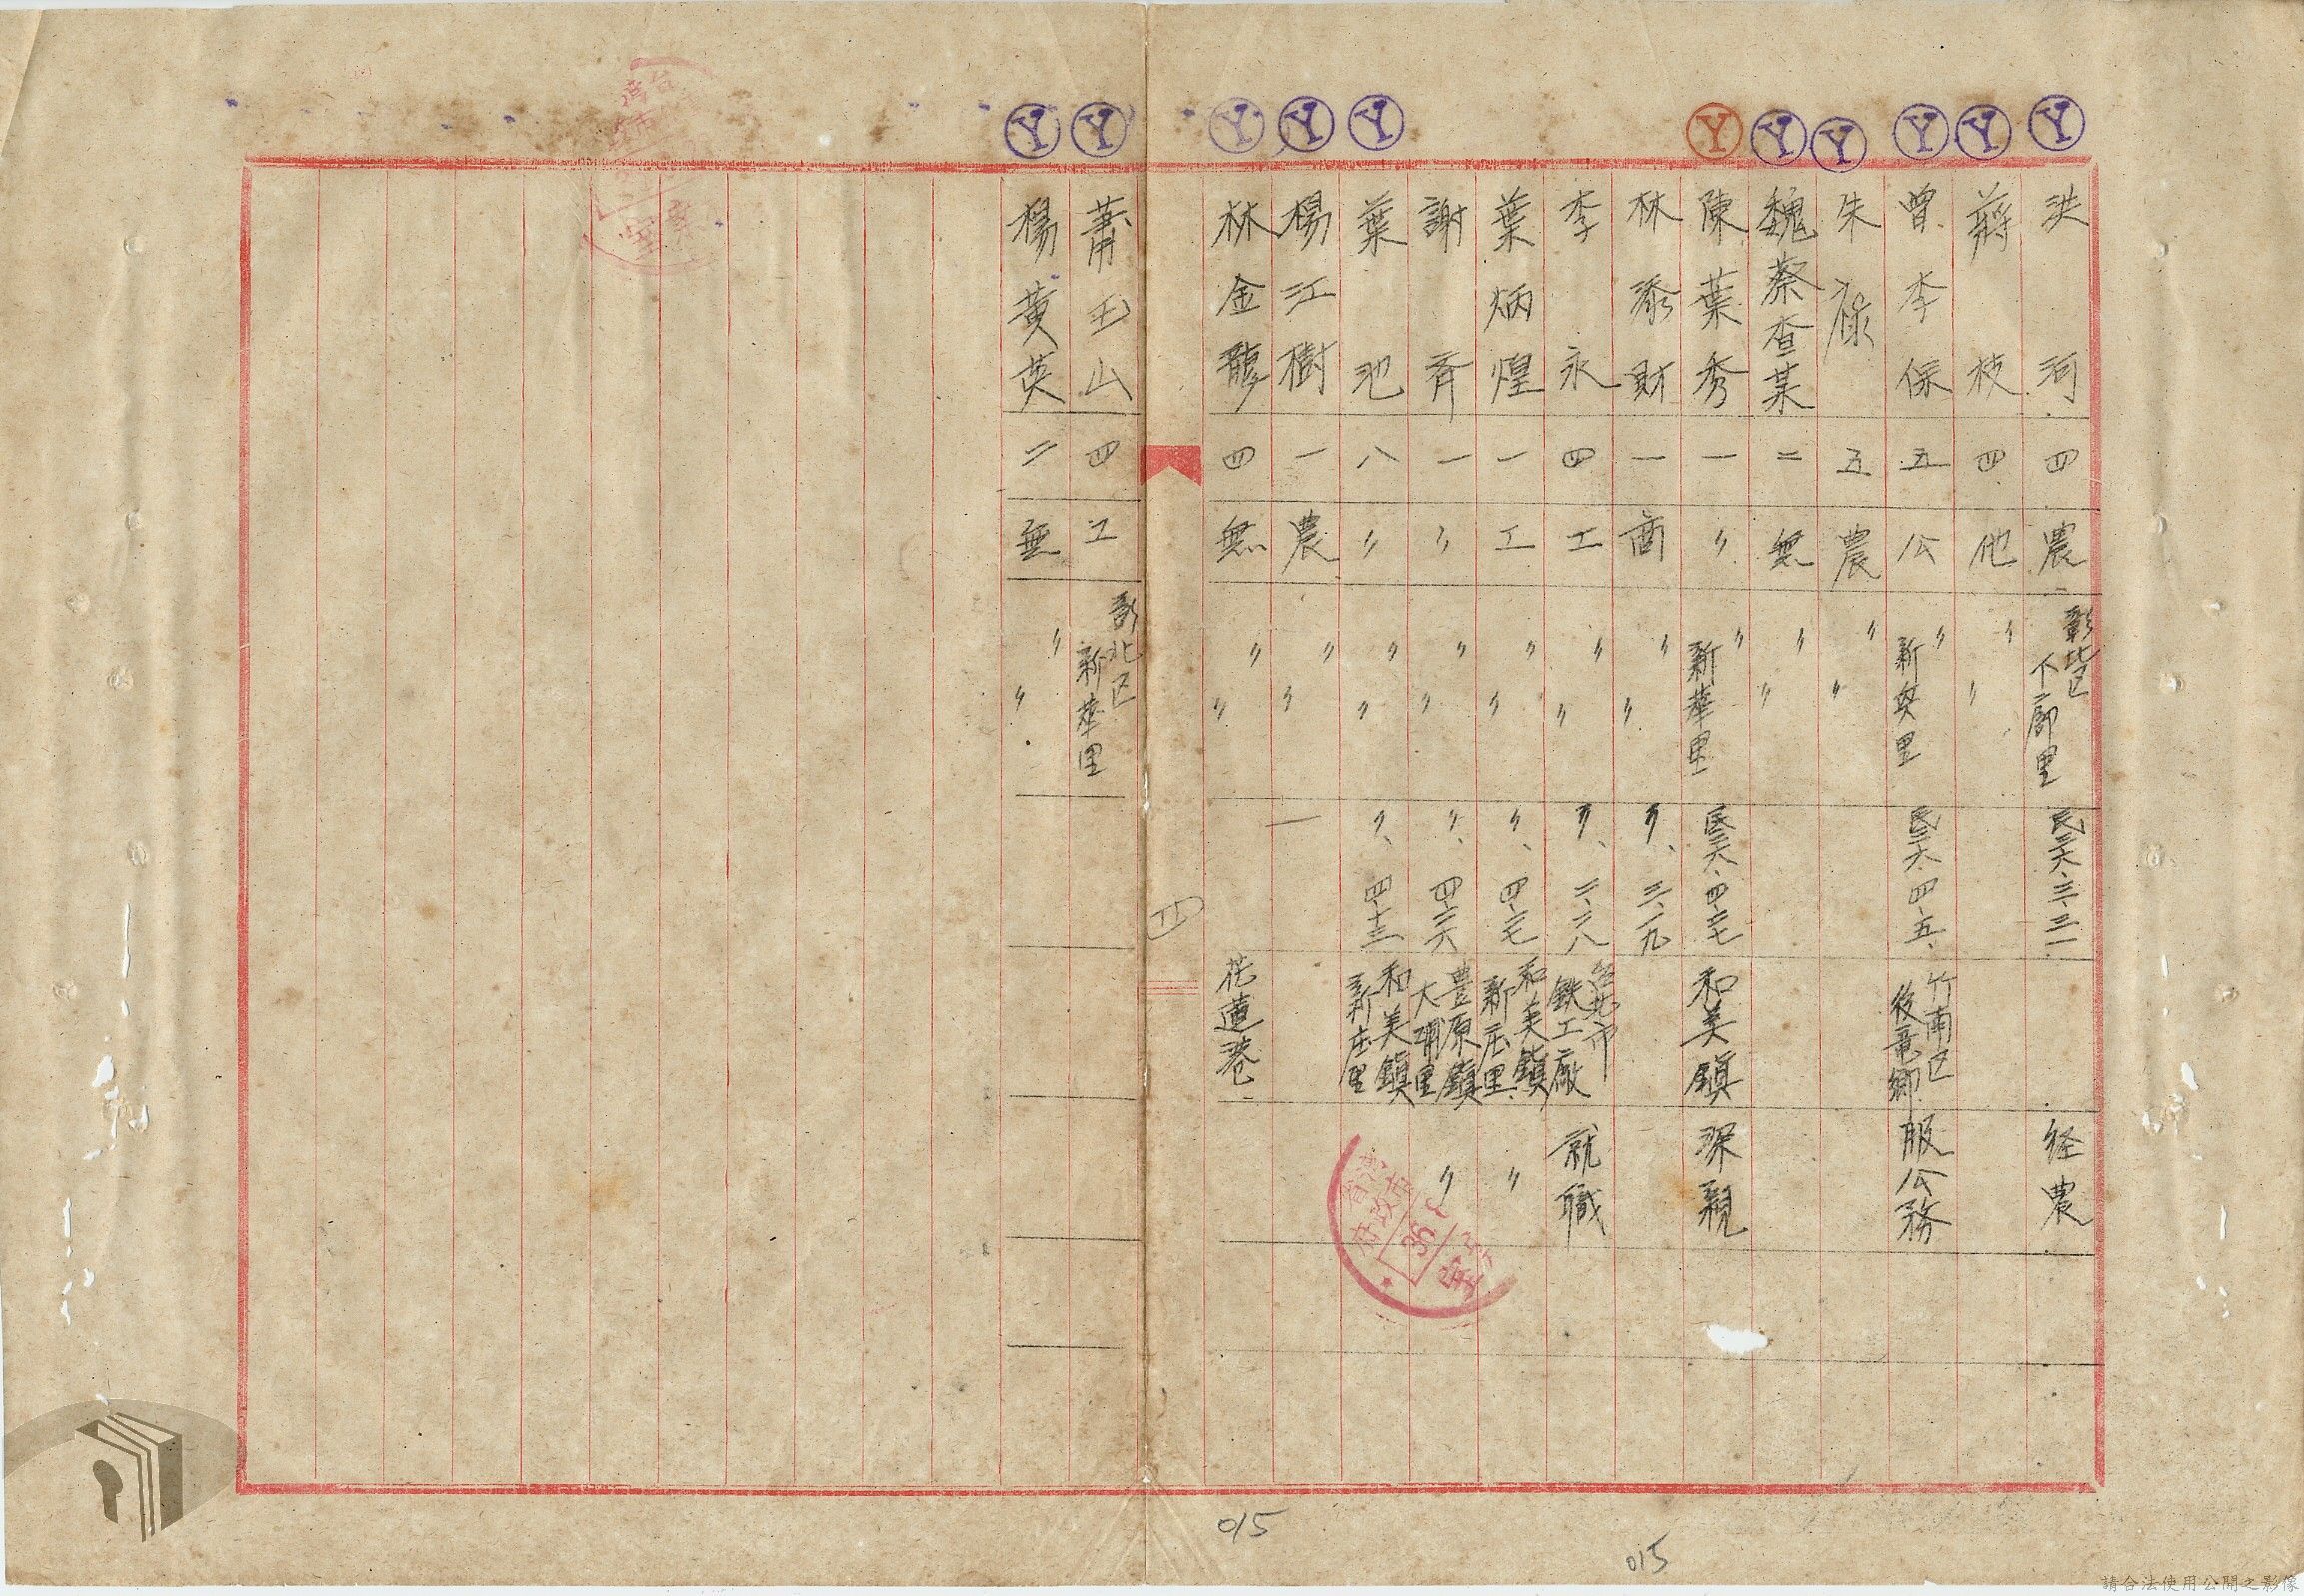 洪河 四 農 彰北区 下廍里 民三六、三、三一 経農
蔣枝 四 他 〃 〃
曾李保 五 公 〃 新興里 民三六、四、五、 竹南区 後竜郷 服公務
朱祿 五 農 〃 〃
魏蔡查某 二 無 〃 〃
陳葉秀 一 〃 〃 新華里 民三六、四、二七 和美鎮 深親
林添財 一 商 〃 〃 〃、三、二九
李永 四 工 〃 〃 〃、二、二八 台北市 鉄工廠 就職
葉炳煌 一 工 〃 〃 〃、四、二七 和美鎮 新庄里 〃
謝齊 一 〃 〃 〃 〃、四、二六 豊原鎮 大湳里 〃
葉池 八 〃 〃 〃 〃、四、十三 和美鎮 新庄里
楊江樹 一 農 〃 〃 一
林金龍 四 無 〃 〃 花蓮港
蕭玉山 四 工 彰北区 新華里
楊黃英 二 無 〃 〃
Y Y Y Y Y Y Y Y Y Y Y
015
015
請合法使用公開之影像